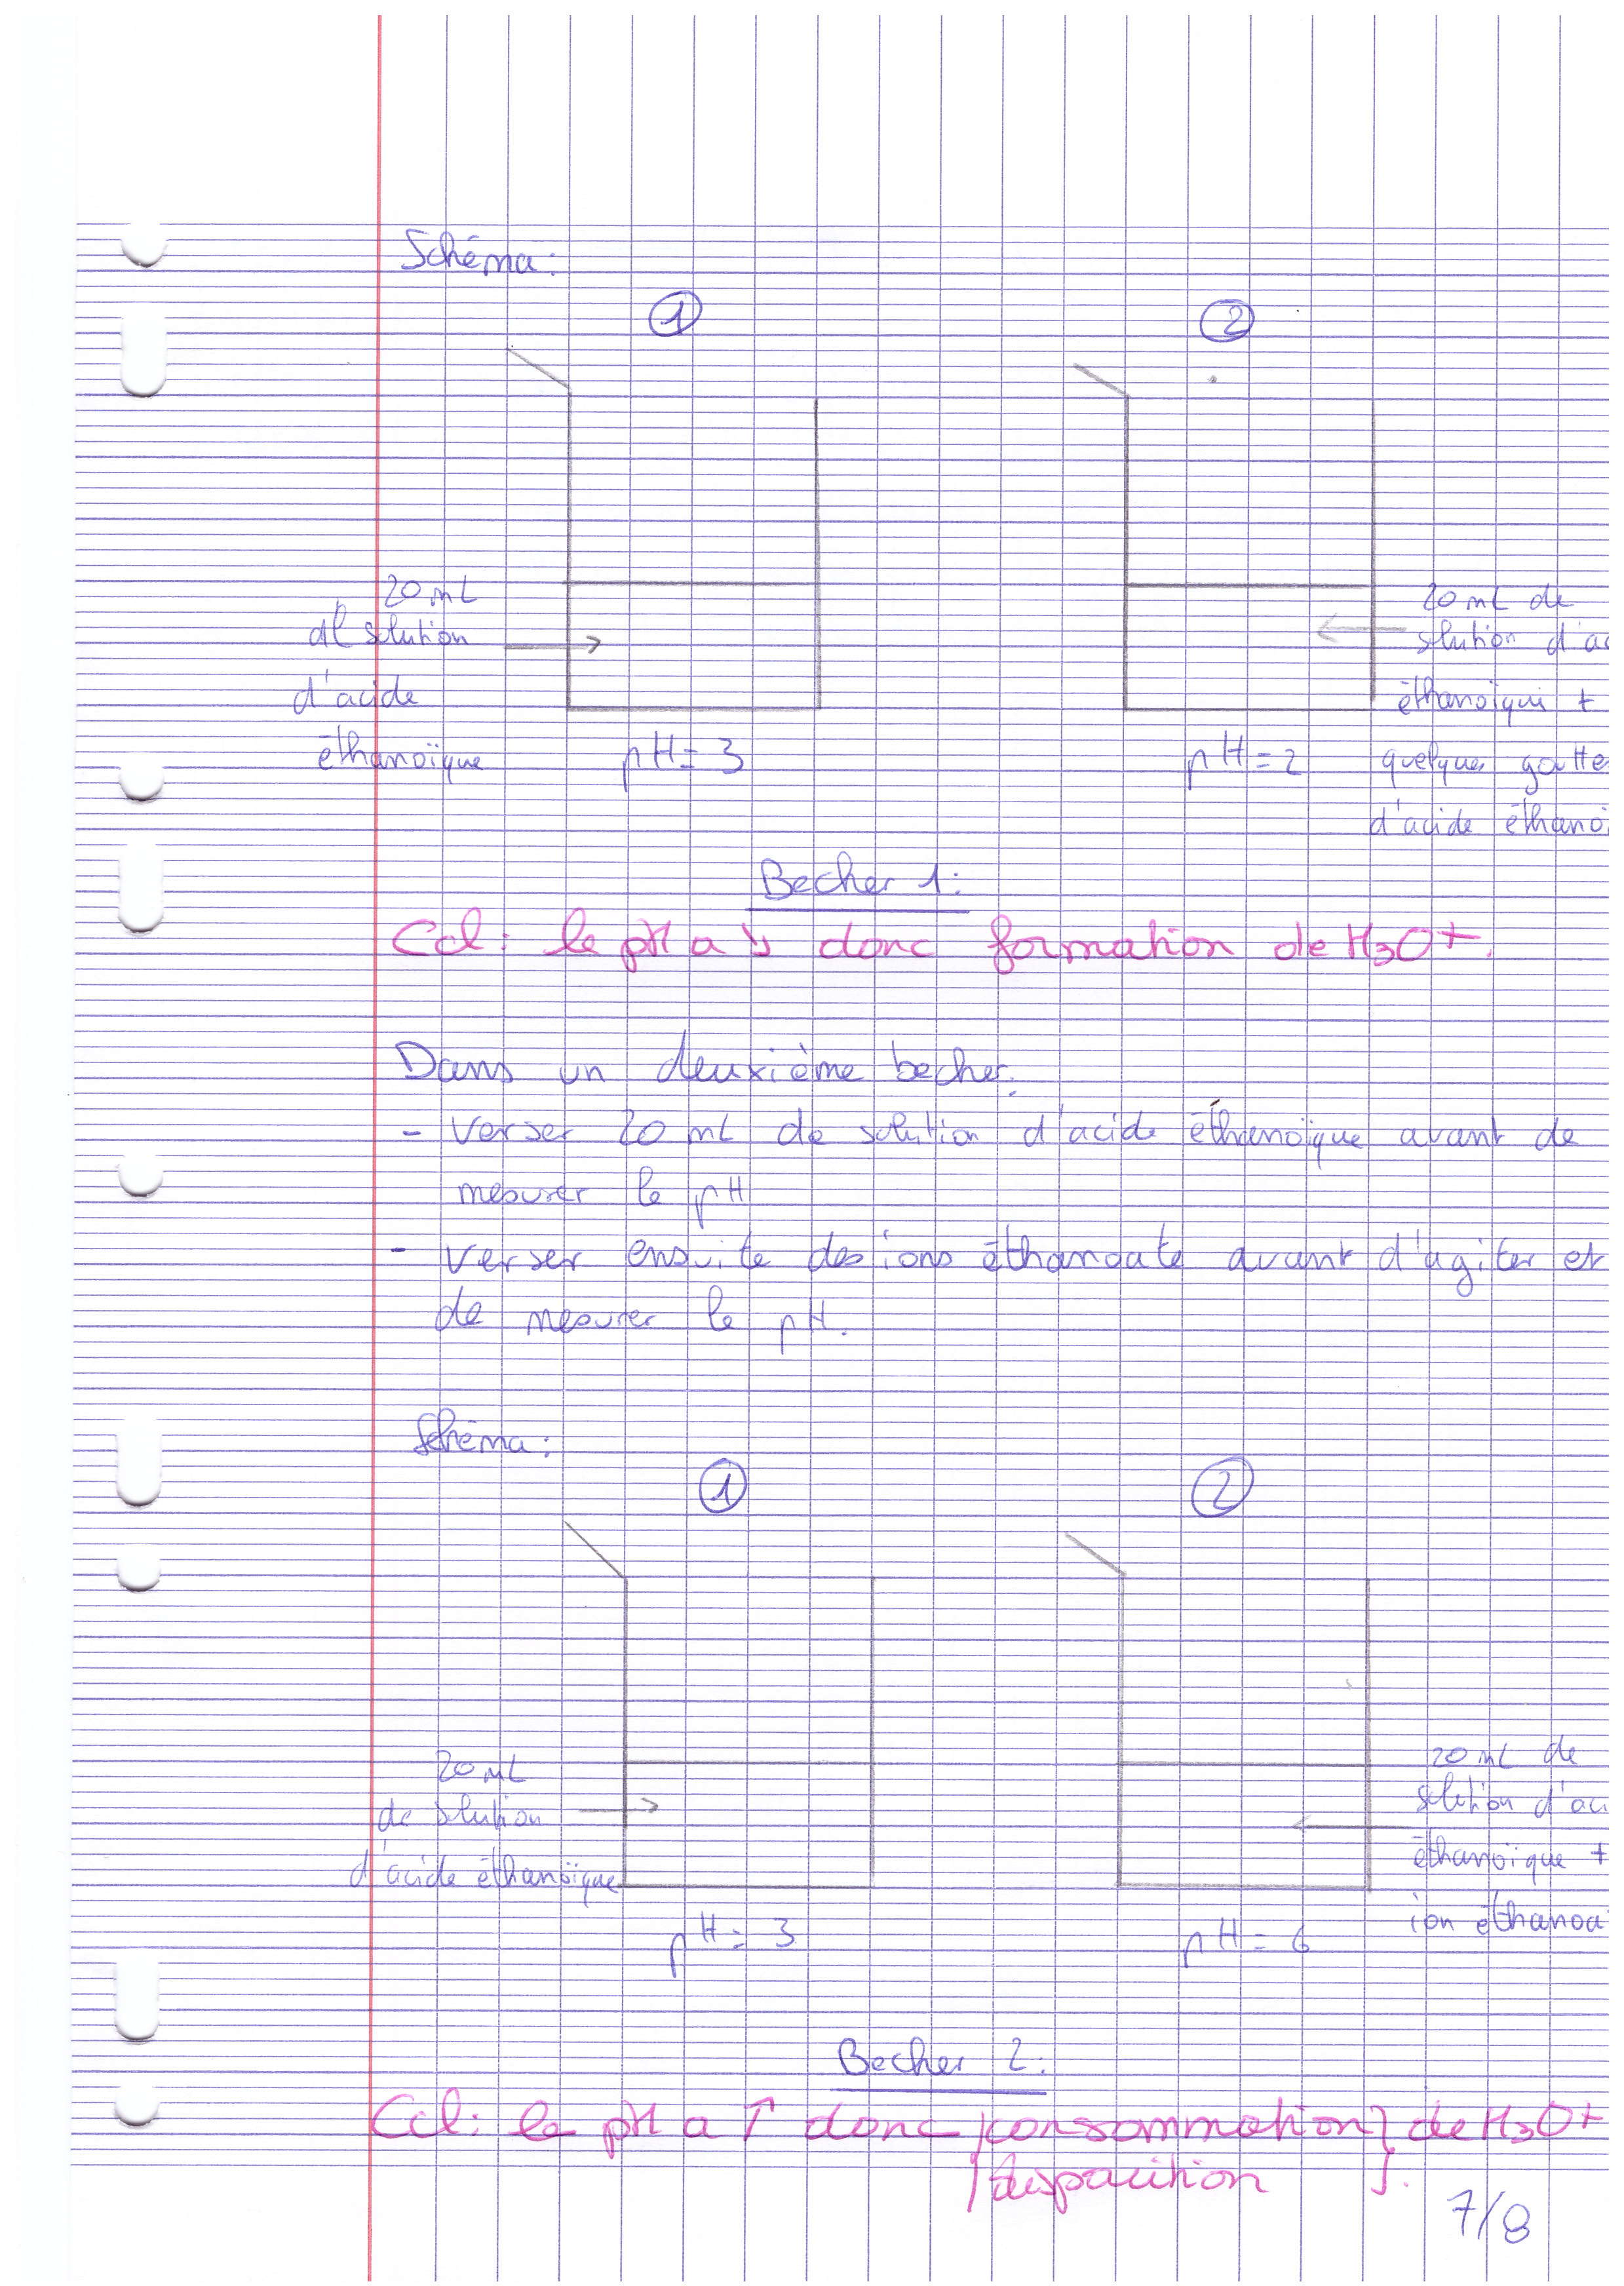 Schéma:
1
2
20 mL
de solution
d'acide
éthanoïque
20 mL de
solution d'ac
éthanoïque +
quelques goutte
d'acide éthanoï
pH = 3
pH = 2
Becher 1:
Ccl: le pH a ↘ donc formation de H3O+.
Dans un deuxième becher:
- Verser 20 mL de solution d'acide éthanoïque avant de
mesurer le pH
- verser ensuite des ions éthanoate avant d'agiter et
de mesurer le pH.
Schéma:
1
2
20 mL
de solution
d'acide éthanoïque
20 mL de
solution d'aci
éthanoïque +
ion éthanoa
pH = 3
pH = 6
Becher 2:
Ccl: le pH a ↑ donc consommation de H3O+
disparition .
7/8